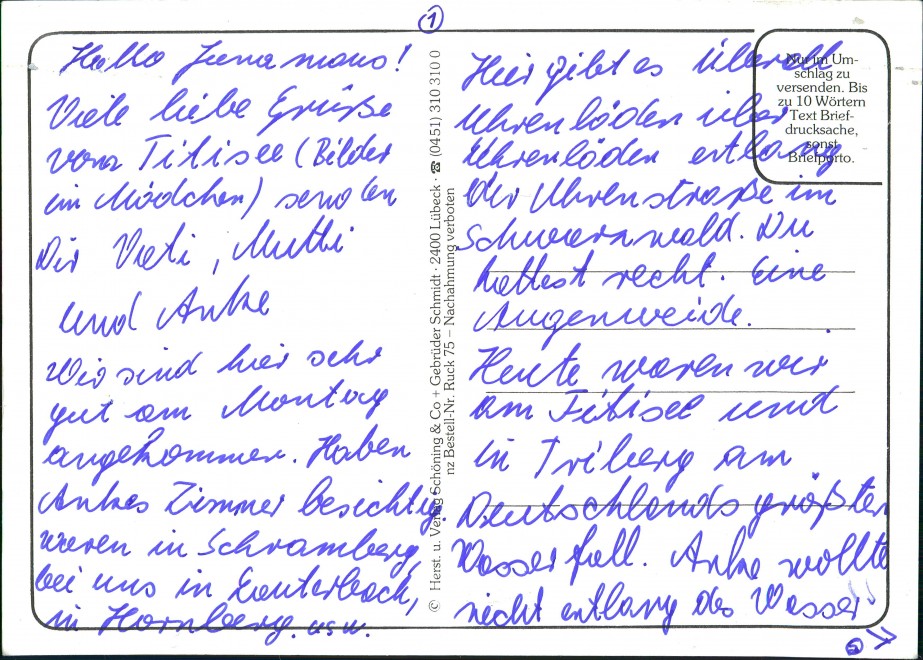 ①
Hallo Junamaus!
Viele liebe Grüße
vom Titisee (Bilder
im Mädchen) senden
Dir Vati, Mutti
und Anke
Wir sind hier sehr
gut am Montag
angekommen. Haben
Ankes Zimmer besichtig
waren in Schramberg,
bei uns in Lauterbach,
in Hornberg. usw.
© Herst. u. Verlag Schöning & Co + Gebrüder Schmidt · 2400 Lübeck · ☎ (0451) 310 310 0
nz Bestell-Nr. Ruck 75 – Nachahmung verboten
Nur im Um-
schlag zu
versenden. Bis
zu 10 Wörtern
Text Brief-
drucksache,
sonst
Briefporto.
Hier gibt es Überall
Uhrenläden über
Uhrenläden entlang
der Uhrenstraße im
Schwarzwald. Du
hattest recht. Eine
Augenweide.
Heute waren wir
am Titisee und
in Triberg am
Deutschlands größten
Wasserfall. Anke wollte
nicht entlang des Wasser